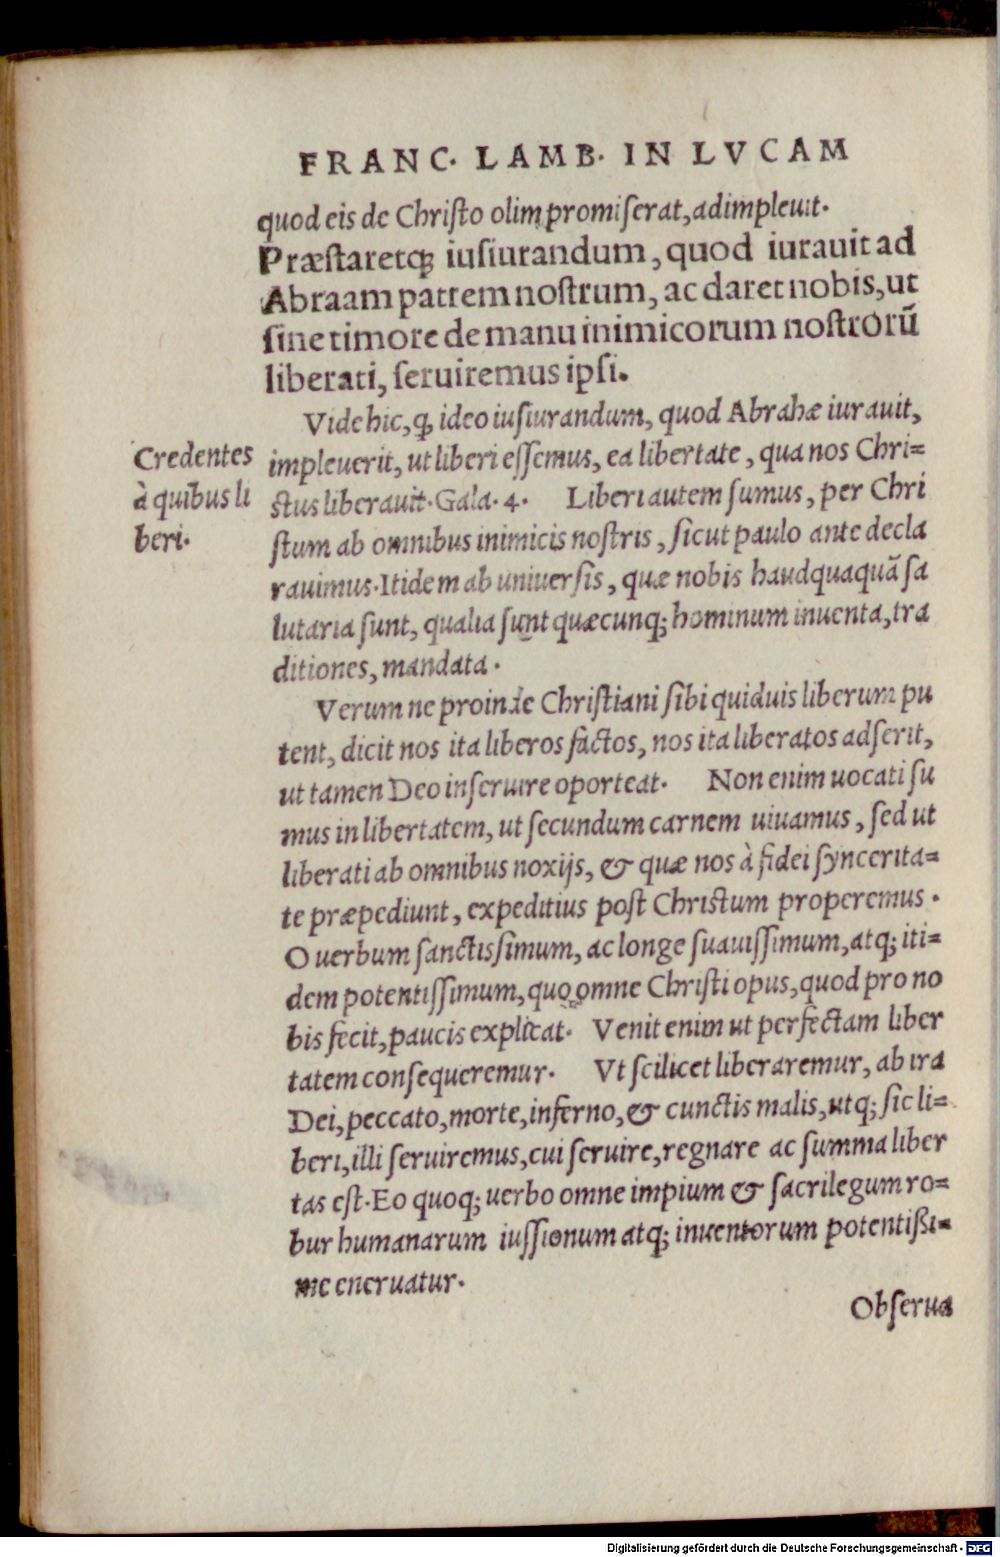 FRANC. LAMB. IN LVCAM
quod eis de Christo olim promiserat, adimpleuit.
Præstaretq; iusiurandum, quod iurauit ad
Abraam patrem nostrum, ac daret nobis, ut
sine timore de manu inimicorum nostrorū
liberati, seruiremus ipsi.
Vide hic, ꝙ ideo iusiurandum, quod Abrahæ iurauit,
Credentes
à quibus li
beri.
impleuerit, ut liberi essemus, ea libertate, qua nos Chri=
stus liberauit. Gala. 4. Liberi autem sumus, per Chri
stum ab omnibus inimicis nostris, sicut paulo ante decla
rauimus. Itidem ab uniuersis, quæ nobis haudquaquā sa
lutaria sunt, qualia sunt quæcunq; hominum inuenta, tra
ditiones, mandata.
Verum ne proinde Christiani sibi quiduis liberum pu
tent, dicit nos ita liberos factos, nos ita liberatos adserit,
ut tamen Deo inseruire oporteat. Non enim uocati su
mus in libertatem, ut secundum carnem uiuamus, sed ut
liberati ab omnibus noxijs, & quæ nos à fidei syncerita=
te præpediunt, expeditius post Christum properemus.
O uerbum sanctissimum, ac longe suauissimum, atq; iti=
dem potentissimum, quo omne Christi opus, quod pro no
bis fecit, paucis explicat. Venit enim ut perfectam liber
tatem consequeremur. Vt scilicet liberaremur, ab ira
Dei, peccato, morte, inferno, & cunctis malis, utq; sic li=
beri, illi seruiremus, cui seruire, regnare ac summa liber
tas est. Eo quoq; uerbo omne impium & sacrilegum ro=
bur humanarum iussionum atq; inuentorum potentißi=
me eneruatur.
Obserua
Digitalisierung gefördert durch die Deutsche Forschungsgemeinschaft - DFG